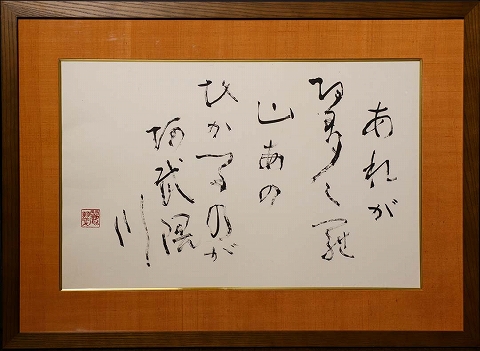 あれが
阿多々羅
山あの
ひかるのが
阿武隈
川